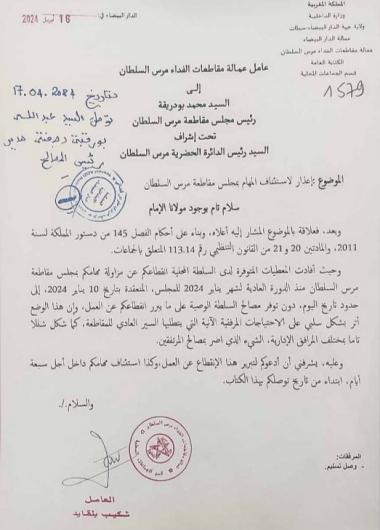 المملكة المغربية
وزارة الداخلية
ولاية جهة الدار البيضاء-سطات
عمالة الدار البيضاء
عمالة مقاطعات الفداء مرس السلطان
الكتابة العامة
قسم الجماعات المحلية
1579
الدار البيضاء في
16 أبريل 2024
عامل عمالة مقاطعات الفداء مرس السلطان
إلى
السيد محمد بودريقة
رئيس مجلس مقاطعة مرس السلطان
تحت إشراف
السيد رئيس الدائرة الحضرية مرس السلطان
بتاريخ 17.04.2024
توصل السيد عبد
مدير
المصالح
الموضوع: إعذار لاستئناف المهام بمجلس مقاطعة مرس السلطان
سلام تام بوجود مولانا الإمام
وبعد، فعلاقة بالموضوع المشار إليه أعلاه، وبناء على أحكام الفصل 145 من دستور المملكة لسنة
2011، والمادتين 20 و 21 من القانون التنظيمي رقم 113.14 المتعلق بالجماعات.
وحيث أفادت المعطيات المتوفرة لدى السلطة المحلية انقطاعكم عن مزاولة مهامكم بمجلس مقاطعة
مرس السلطان منذ الدورة العادية لشهر يناير 2024 للمجلس، المنعقدة بتاريخ 10 يناير 2024، إلى
حدود تاريخ اليوم، دون توفر مصالح السلطة الوصية على ما يبرر انقطاعكم عن العمل، وإن هذا الوضع
أثر بشكل سلبي على الاحتياجات المرفقية الآنية التي يتطلبها السير العادي للمقاطعة، كما شكل شللا
تاما بمختلف المرافق الإدارية، الشيء الذي اضر بمصالح المرتفقين.
وعليه، يشرفني أن أدعوكم لتبرير هذا الإنقطاع عن العمل، وكذا استئناف مهامكم داخل أجل سبعة
أيام، ابتداء من تاريخ توصلكم بهذا الكتاب.
والسلام./.
المرفقات:
- وصل تسليم.
العامل
شكيب بلقايد